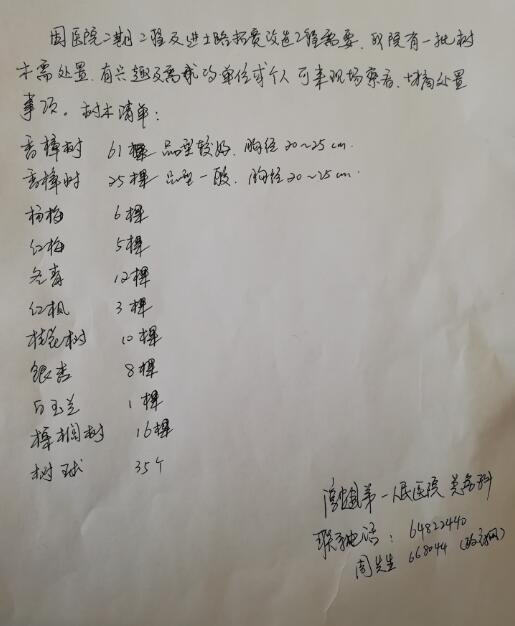 因医院二期工程及进士路拓宽改造工程需要,我院有一批树
木需处置,有兴趣及需求的单位或个人可来现场察看、协商处置
事项。树木清单:
香樟树 61棵 品型较好、胸径20~25cm.
香樟树 25棵 品型一般、胸径20~25cm.
杨梅 6棵
红梅 5棵
冬青 12棵
红枫 3棵
桂花树 10棵
银杏 8棵
白玉兰 1棵
棕榈树 16棵
树球 35个
第一人民医院 总务科
联系电话: 64822440
周先生 668044